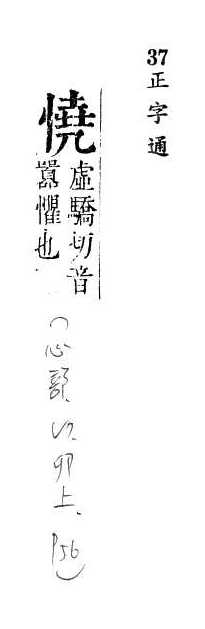 37正字通
憢
虛驕切音
囂懼也
(心部、卯上、P56)